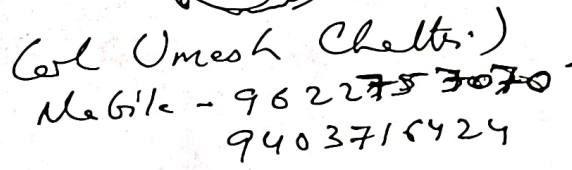 (Col Umesh Chettri)
Mobile - 9622757070
9403716424